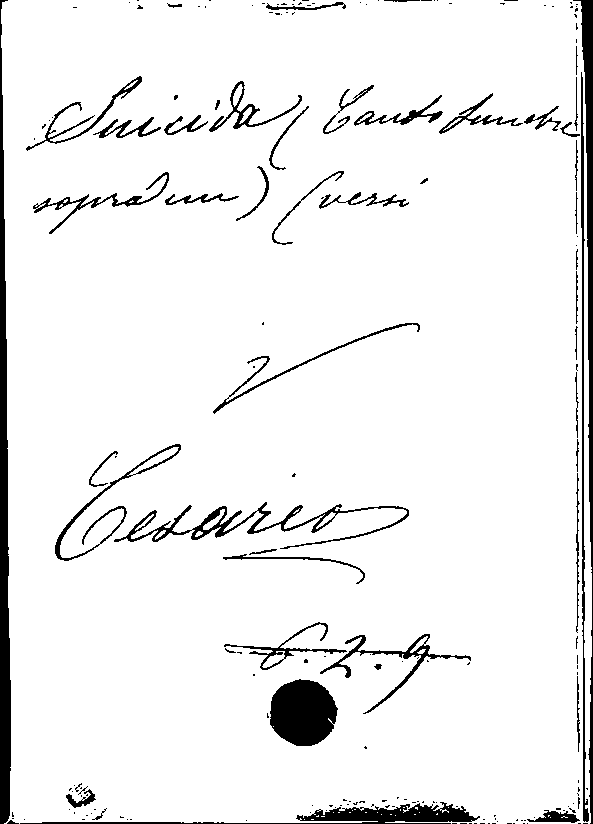 Suicida (Canto funebre
sopra un) (versi
V
Cesareo
6.2.9